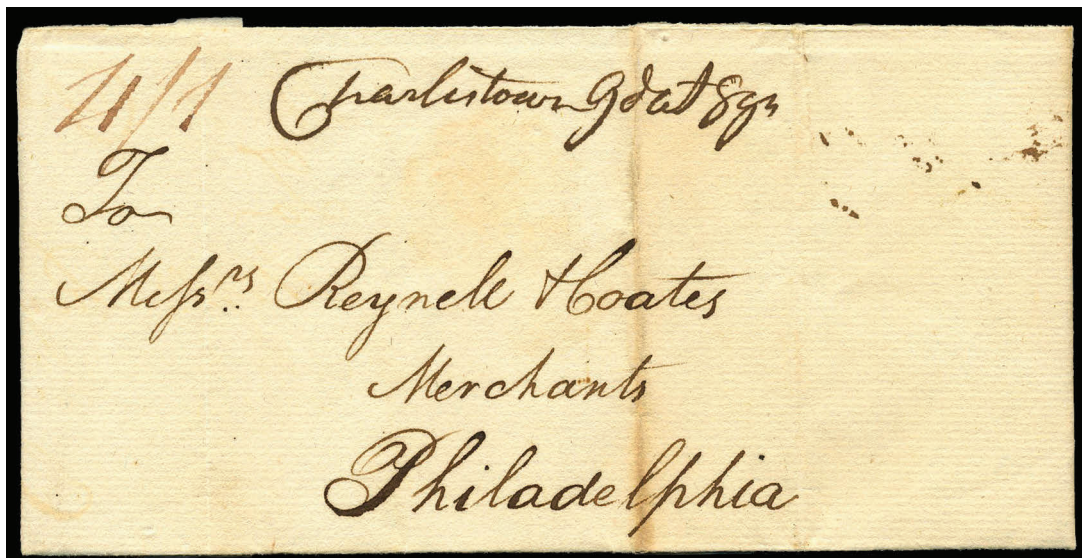 4/1 Charlestown 9dwt 8grs
To
Messrs Reynell & Coates
Merchants
Philadelphia